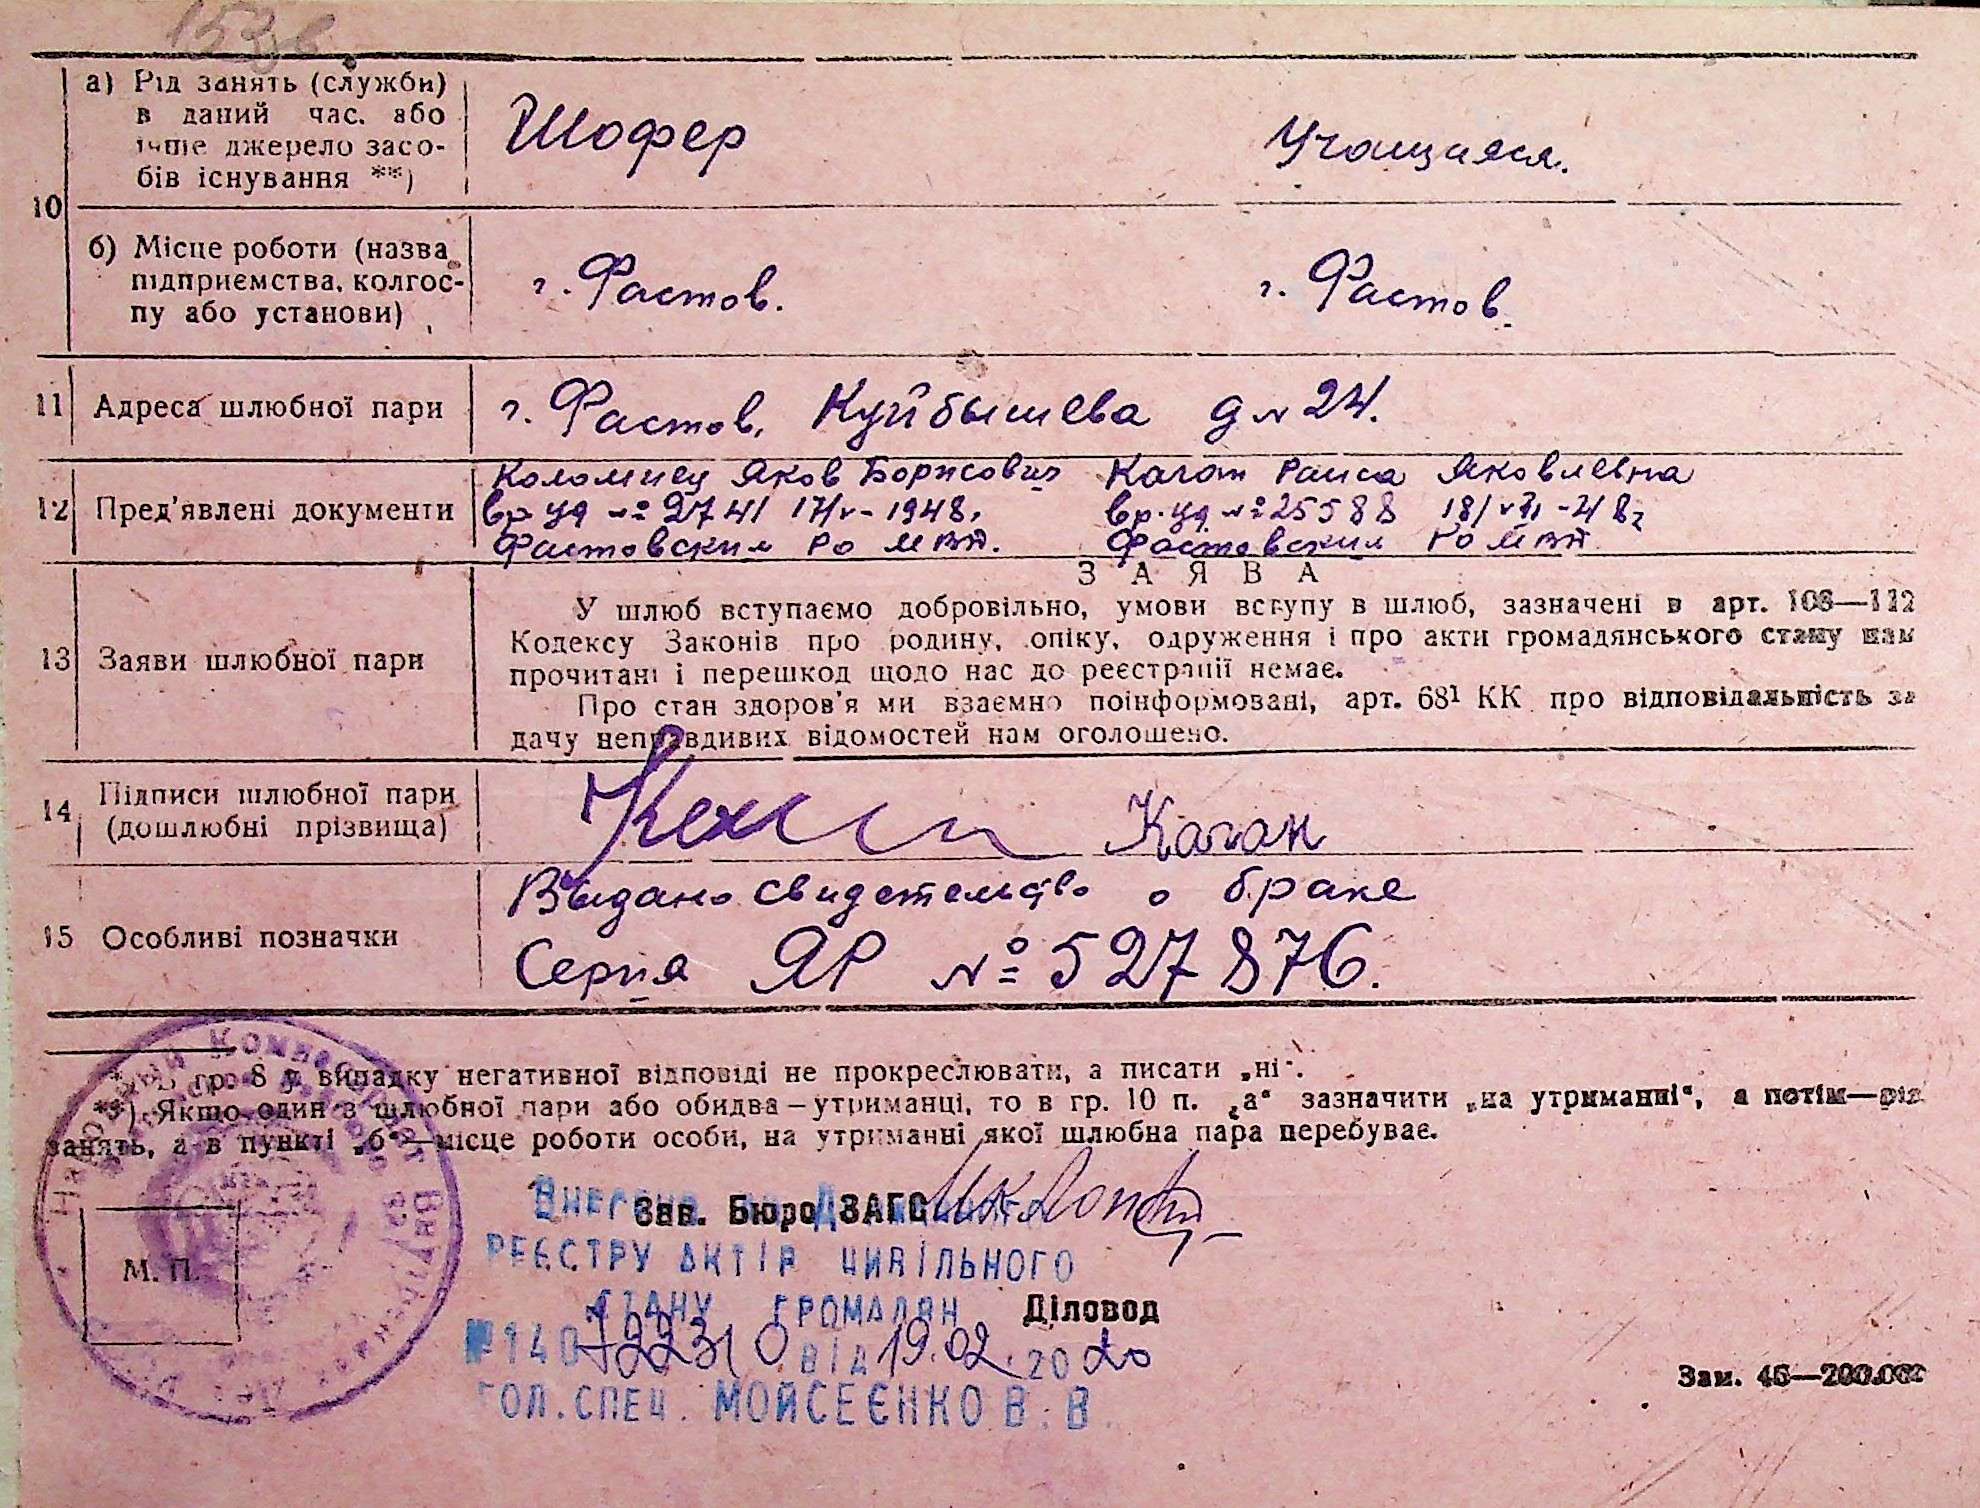 а) Рід занять (служби)
в даний час. або
інше джерело засо-
бів існування **)
Шофер
Учащаяся.
10
б) Місце роботи (назва
підприємства, колгос-
пу або установи)
г. Фастов.
г. Фастов.
11 Адреса шлюбної пари
г. Фастов, Куйбышева д № 24.
12 Пред'явлені документи
Коломиец Яков Борисович
вр уд № 2741 17/V-1948,
Фастовским РО МВД.
Каган Раиса Яковлевна
вр. уд № 25588 18/VII-48г
Фастовским РО МВД
13 Заяви шлюбної пари
З А Я В А
У шлюб вступаємо добровільно, умови вступу в шлюб, зазначені в арт. 108—112
Кодексу Законів про родину, опіку, одруження і про акти громадянського стану нам
прочитані і перешкод щодо нас до реєстрації немає.
Про стан здоров'я ми взаємно поінформовані, арт. 68¹ КК про відповідальність за
дачу неправдивих відомостей нам оголошено.
14 Підписи шлюбної пари
(дошлюбні прізвища)
Каган
15 Особливі позначки
Выдано свидетельство о браке
Серия ЯР № 527876.
*) В гр. 8 у випадку негативної відповіді не прокреслювати, а писати „ні".
**) Якщо один з шлюбної пари або обидва—утриманці, то в гр. 10 п. „а" зазначити „на утриманні", а потім—рід
занять, а в пункті „б"—місце роботи особи, на утриманні якої шлюбна пара перебуває.
Народный Комиссариат Внутренних Дел
М. П.
Зав. Бюро ЗАГС
Внесено до Державного
РЕЄСТРУ АКТІВ ЦИВІЛЬНОГО
СТАНУ ГРОМАДЯН
Діловод
№140 від 19.02.2020
ГОЛ.СПЕЦ. МОЙСЕЄНКО В.В.
Зам. 45—200.000